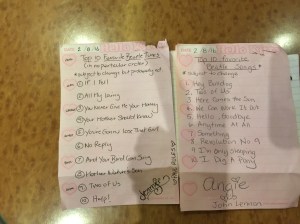 Top 10 Favorite Beatle Tunes
(in no particular order)
*subject to change but probably not
① If I Fell
② All My Loving
③ You Never Give Me Your Money
④ Your Mother Should Know
⑤ You're Gonna Lose That Girl
⑥ No Reply
⑦ And Your Bird Can Sing
⑧ Mother Nature's Son
⑨ Two of Us
⑩ Help!
Top 10 Favorite
Beatle Songs
*subject to change
1. Hey Bulldog
2. Two of Us
3. Here Comes the Sun
4. We Can Work It Out
5. Hello, Goodbye
6. Anytime At All
7. Something
8. Revolution No. 9
9. I'm Only Sleeping
10. I Dig A Pony
Angie
John Lennon